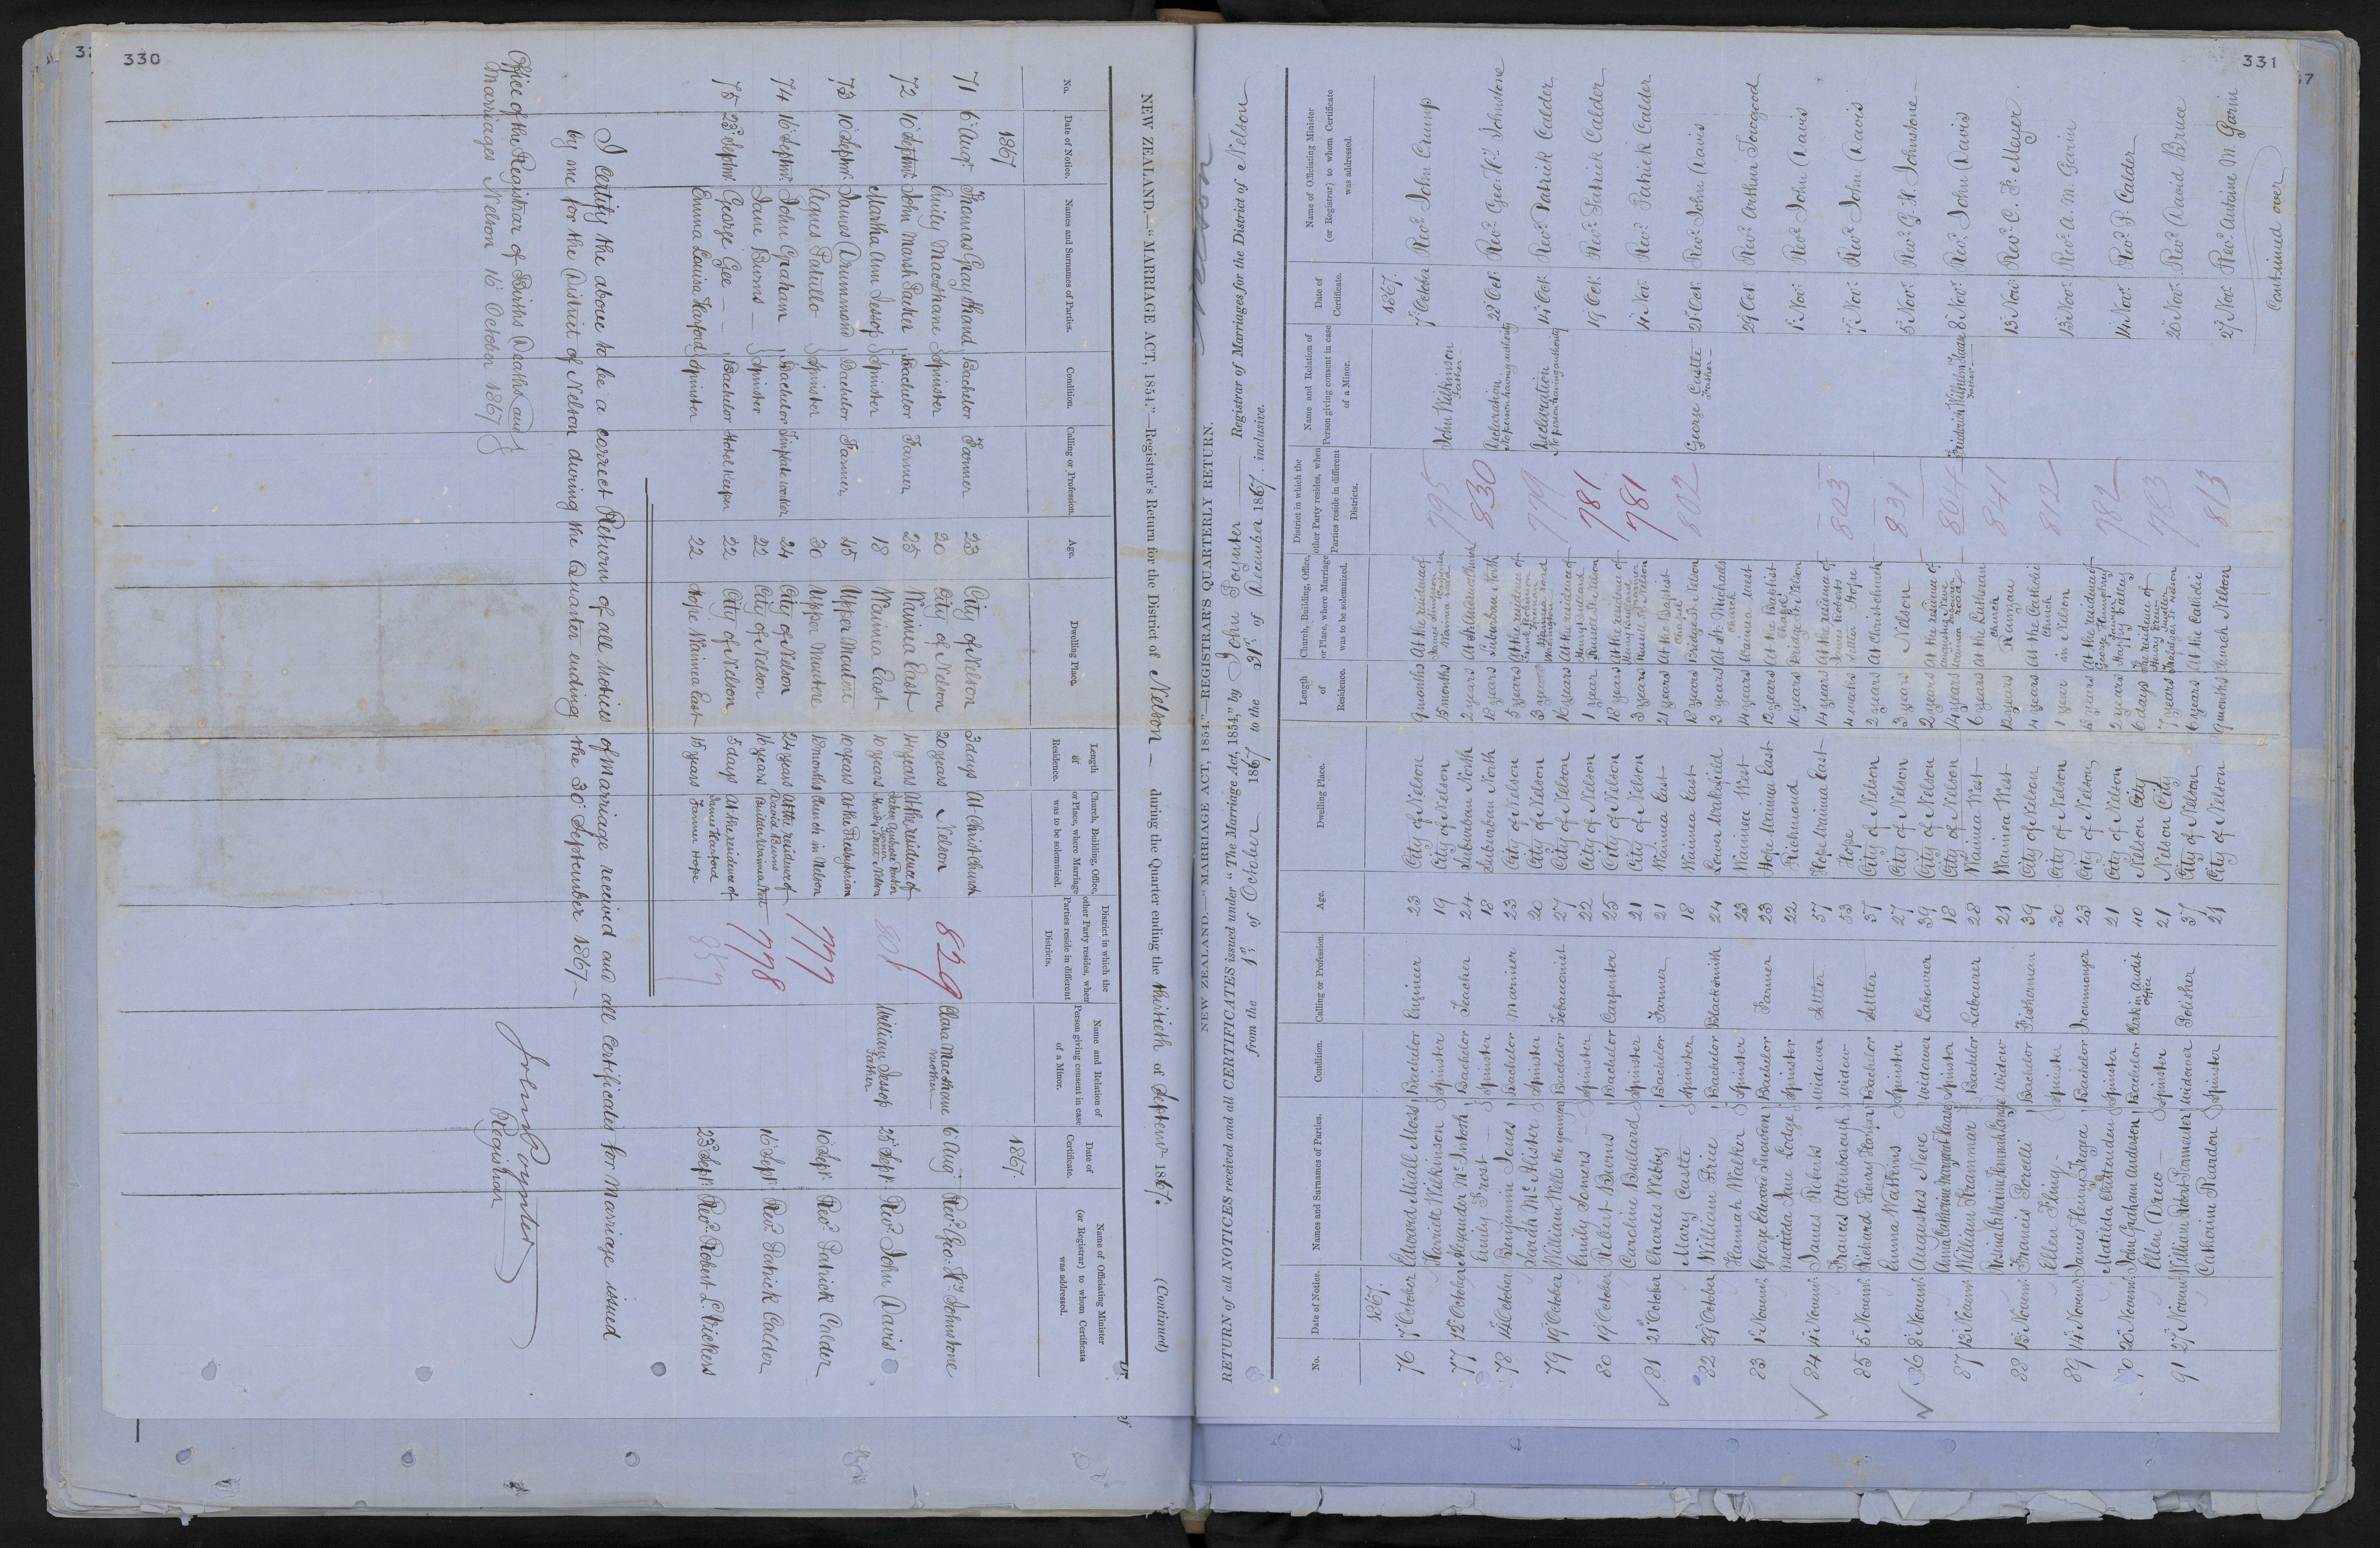 330
NEW ZEALAND.—"MARRIAGE ACT, 1854."—Registrar's Return for the District of Nelson — during the Quarter ending the thirtieth of Septemr 1867. (Continued)
No. Date of Notice. Names and Surnames of Parties. Condition. Calling or Profession. Age. Dwelling Place. Length of Residence. Church, Building, Office, or Place, where Marriage was to be solemnized. District in which the other Party resides, when Parties reside in different Districts. Name and Relation of Person giving consent in case of a Minor. Date of Certificate. Name of Officiating Minister (or Registrar) to whom Certificate was addressed.
1867 1867.
71 6 Augt Thomas Gray Hand Bachelor Farmer 23 City of Nelson 3 days At Christ Church 829 Clara MacShane 6 Aug Revd Geo: Hy: Johnstone
Emily MacShane Spinster 20 City of Nelson 20 years Nelson Mother
72 10 Septmr John Marsh Parker Bachelor Farmer 25 Waimea East 14 years At the residence of 801 William Jessop 25 Sept Revd John Davis
Martha Ann Jessop Spinster 18 Waimea East 10 years Hardy Street Nelson Father
73 10 Septmr James Drummond Bachelor Farmer 45 Upper Moutere 10 years At the Presbyterian 777 10 Sept Revd Patrick Calder
Agnes Patullo Spinster 30 Upper Moutere 18 months Church in Nelson
74 16 Septmr John Graham Bachelor 24 City of Nelson 24 years At the residence of 778 16 Sept Revd Patrick Calder
Jane Burns — Spinster 22 City of Nelson 16 years David Burns Builder Waimea
75 23 Septmr George Gee — Bachelor Hotel Keeper 22 City of Nelson 5 days At the residence of 857 23 Sept Revd Robert L. Vickers
Emma Louisa Harford Spinster 22 Hope Waimea East 15 years James Harford Farmer Hope
I certify the above to be a correct Return of all notices of marriage received and all Certificates for Marriage issued
by me for the District of Nelson during the Quarter ending the 30 September 1867 —
John Poynter
Registrar
Office of the Registrar of Births Deaths and
Marriages Nelson 16 October 1867
331
Nelson
NEW ZEALAND.—"MARRIAGE ACT, 1854."—REGISTRAR'S QUARTERLY RETURN.
RETURN of all NOTICES received and all CERTIFICATES issued under "The Marriage Act, 1854," by John Poynter Registrar of Marriages for the District of Nelson
from the 1st of October 1867 to the 31st of December 1867. inclusive.
No. Date of Notice. Names and Surnames of Parties. Condition. Calling or Profession. Age. Dwelling Place. Length of Residence. Church, Building, Office, or Place, where Marriage was to be solemnized. District in which the other Party resides, when Parties reside in different Districts. Name and Relation of Person giving consent in case of a Minor. Date of Certificate. Name of Officiating Minister (or Registrar) to whom Certificate was addressed.
1867. 1867.
76 7 October Edward Miall Moss Bachelor Engineer 23 City of Nelson 9 months At the residence of 795 John Wilkinson 7 October Revd John Crump
Harriet Wilkinson Spinster 19 City of Nelson 15 months Waimea road Father
77 12 October Alexander McIntosh Bachelor Teacher 24 Suburban North 2 years 830 Declaration 22 Oct. Revd Geo: Hy: Johnstone
Emily Frost — Spinster 18 Suburban North 18 years Suburban North No person having authority
78 14 October Benjamin Jones Bachelor Mariner 23 City of Nelson 5 years At the residence of 779 Declaration 14 Oct. Revd Patrick Calder
Sarah McAlister Spinster 20 City of Nelson 3 years No person having authority
79 19 October William Wells the younger Bachelor Tobacconist 27 City of Nelson 16 years At the residence of 781 19 Oct. Revd Patrick Calder
Emily Somers — Spinster 22 City of Nelson 1 year Nelson
80 19 October Robert Burns — Bachelor Carpenter 25 City of Nelson 18 years At the residence of 781 4 Nov. Revd Patrick Calder
Caroline Bullard Spinster 21 City of Nelson 3 years Nelson
81 21 October Charles Webby Bachelor Farmer 21 Waimea East 21 years At the Baptist Chapel 802 George Castle 21 Oct. Revd John Davis
Mary Castle Spinster 18 Waimea East 18 years Bridge St. Nelson Father
82 29 October William Price Bachelor Blacksmith 24 Lower Wakefield 3 years At St Michaels Church 29 Oct. Revd Arthur Towgood
Hannah Walker Spinster 23 Waimea West 14 years Waimea West
83 1 Novemr George Edward Snowden Bachelor Farmer 23 Hope Waimea East 12 years At the Baptist Chapel 1 Nov. Revd John Davis
Matilda Jane Lodge Spinster 22 Richmond 16 years Bridge St. Nelson
84 4 Novemr James Roberts Widower Settler 57 Hope Waimea East 14 years At the residence of James Roberts 803 7 Nov. Revd John Davis
Frances Attenborough Widow 53 Hope 4 weeks Settler Hope
85 5 Novemr Richard Henry Harper Bachelor Settler 37 City of Nelson 2 years At Christchurch 831 5 Nov. Revd G. H. Johnstone —
Emma Watkins Spinster 27 City of Nelson 3 years Nelson
86 8 Novemr Augustus Neve Widower Labourer 39 City of Nelson 2 years At the residence of Augustus Neve 804 8 Nov. Revd John Davis
Anna Catharine Margaret Spinster 18 City of Nelson 14 years Waimea road Father
87 13 Novemr William Krammar Bachelor Labourer 28 Waimea West 6 years At the Lutheran Church 841 13 Nov. Revd C. F. Meyer.
Widow 21 Waimea West 12 years Ranzau
88 13 Novemr Francis Porcelli Bachelor Fisherman 39 City of Nelson 4 years At the Catholic Church 812 13 Nov. Revd A. M. Garin
Ellen Fling — Spinster 30 City of Nelson 1 year in Nelson
89 14 Novemr James Henry Bachelor Ironmonger 23 City of Nelson At the residence of 782 14 Nov. Revd P. Calder
Matilda Chittenden Spinster 21 City of Nelson 2 years Happy Valley
90 20 Novemr John Graham Anderson Bachelor Clerk in Audit Office 40 Nelson City 6 days The residence of 783 20 Nov. Revd David Bruce
Ellen Drew — Spinster 21 Nelson City 7 years Henry Drew Jeweller Trafalgar St Nelson
91 27 Novemr William Robert Parmenter Widower Polisher 37 City of Nelson 6 years At the Catholic 813 27 Nov. Revd Antoine M. Garin
Catherine Riardon Spinster 21 City of Nelson 9 months Church Nelson
Continued over